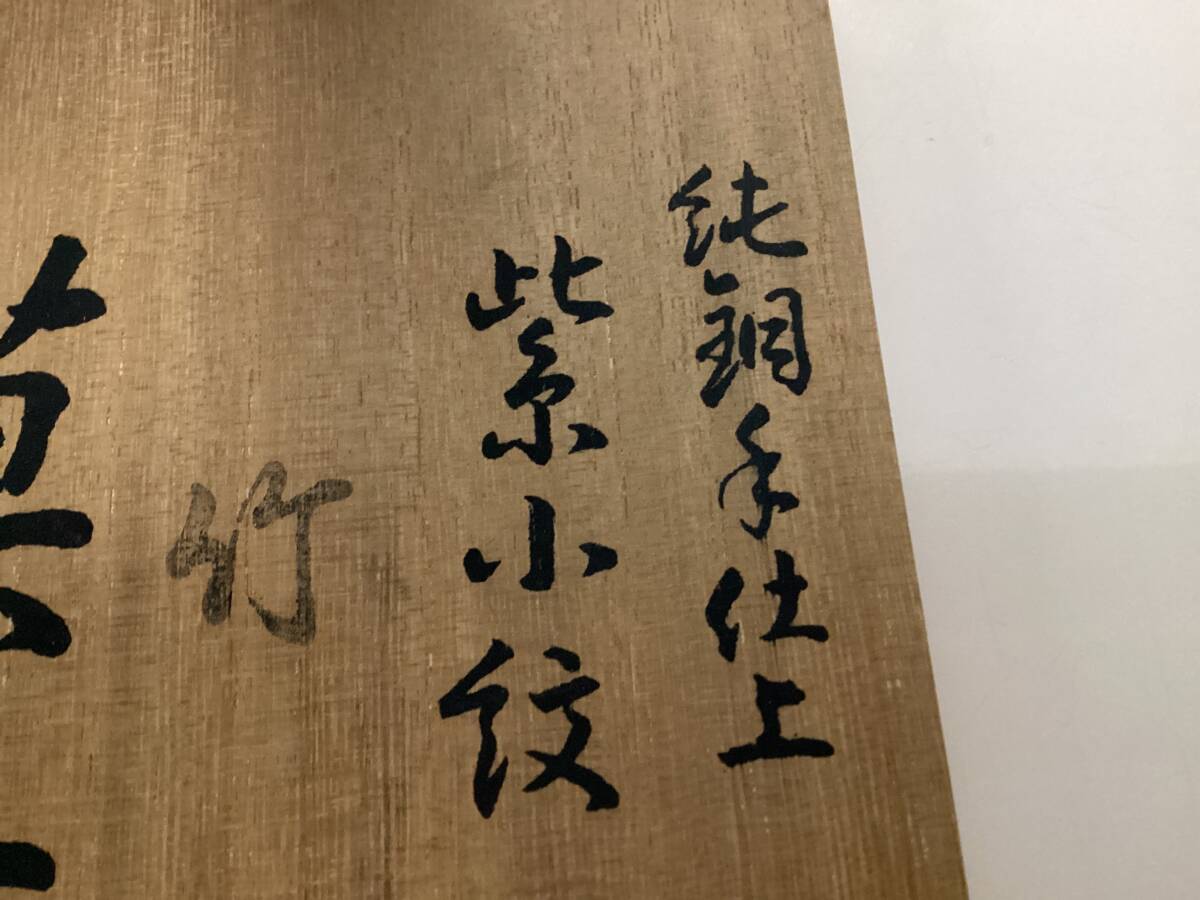 純銅手仕上
紫小紋
竹